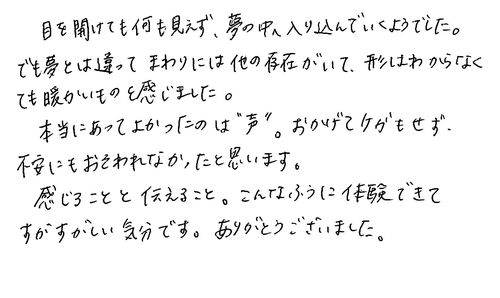 目を開けても何も見えず、夢の中へ入り込んでいくようでした。
でも夢とは違って まわりには他の存在がいて、形はわからなく
ても暖かいものを感じました。
本当にあってよかったのは"声"。おかげでケガもせず、
不安にもおそわれなかったと思います。
感じることと伝えること。こんなふうに体験できて
すがすがしい気分です。ありがとうございました。